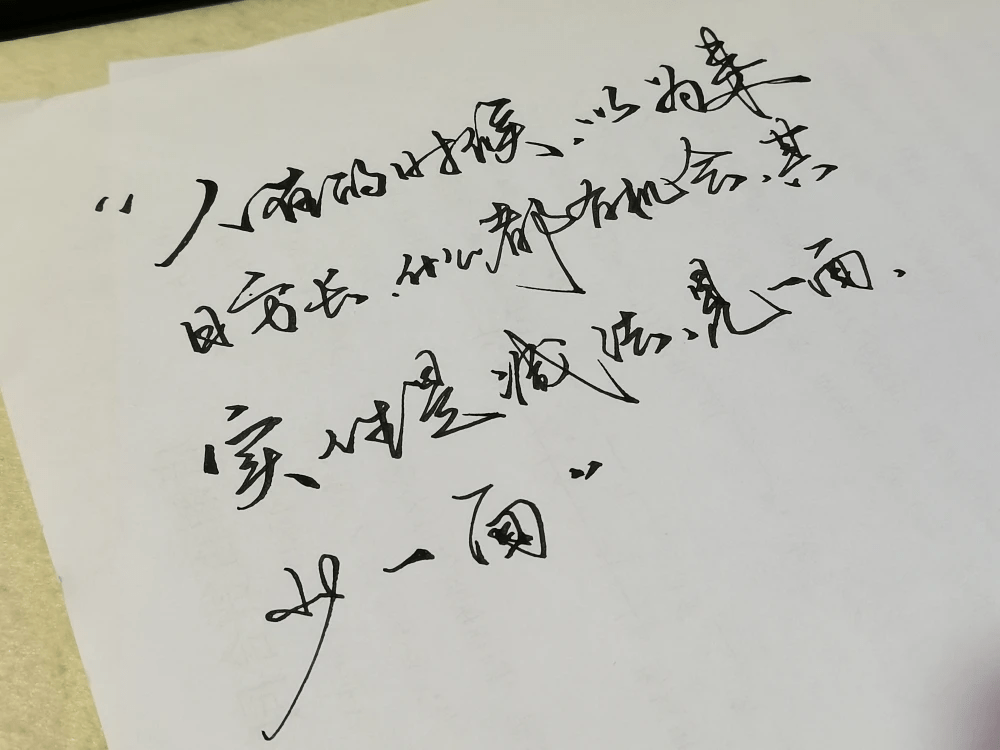 “人有的时候、以为来
日方长.什么都有机会.其
实、人生是减法.见一面.
少一面”